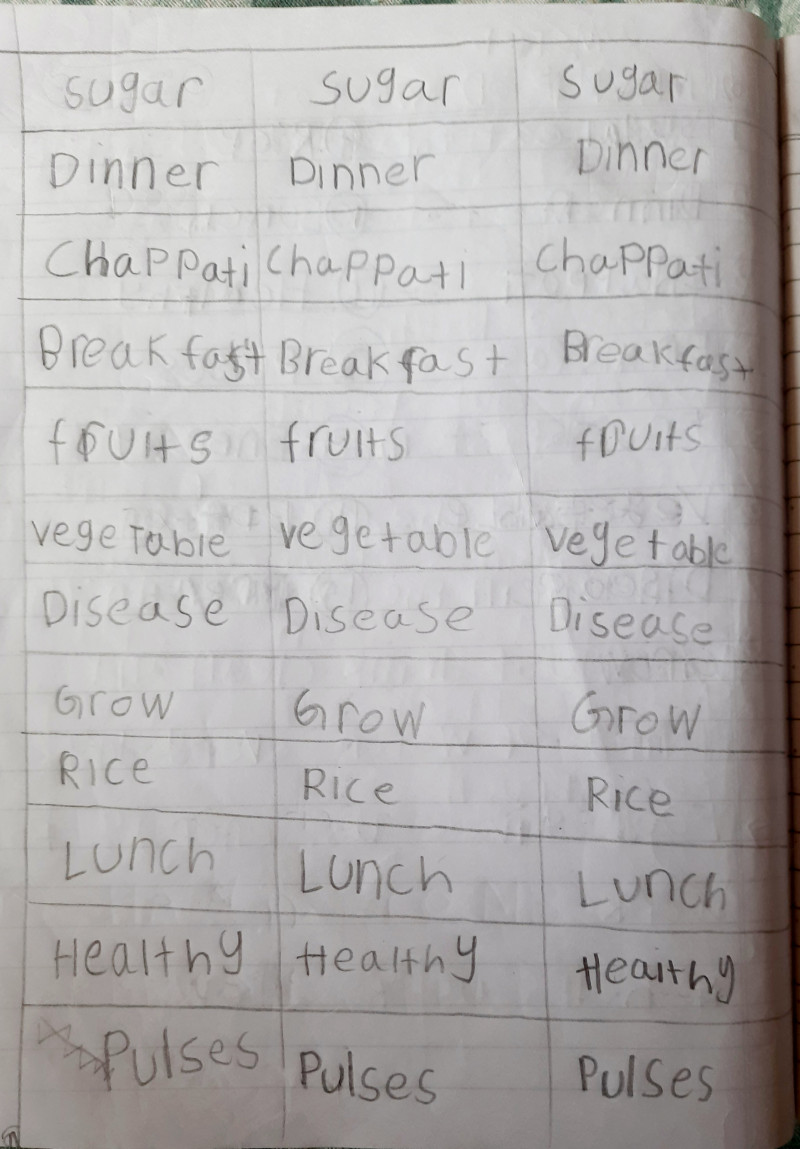 sugar sugar sugar
Dinner Dinner Dinner
Chappati Chappati Chappati
Breakfast Breakfast Breakfast
fruits fruits fruits
vegeTable vegetable vegetable
Disease Disease Disease
Grow Grow Grow
Rice Rice Rice
Lunch Lunch Lunch
Healthy Healthy Healthy
Pulses Pulses Pulses